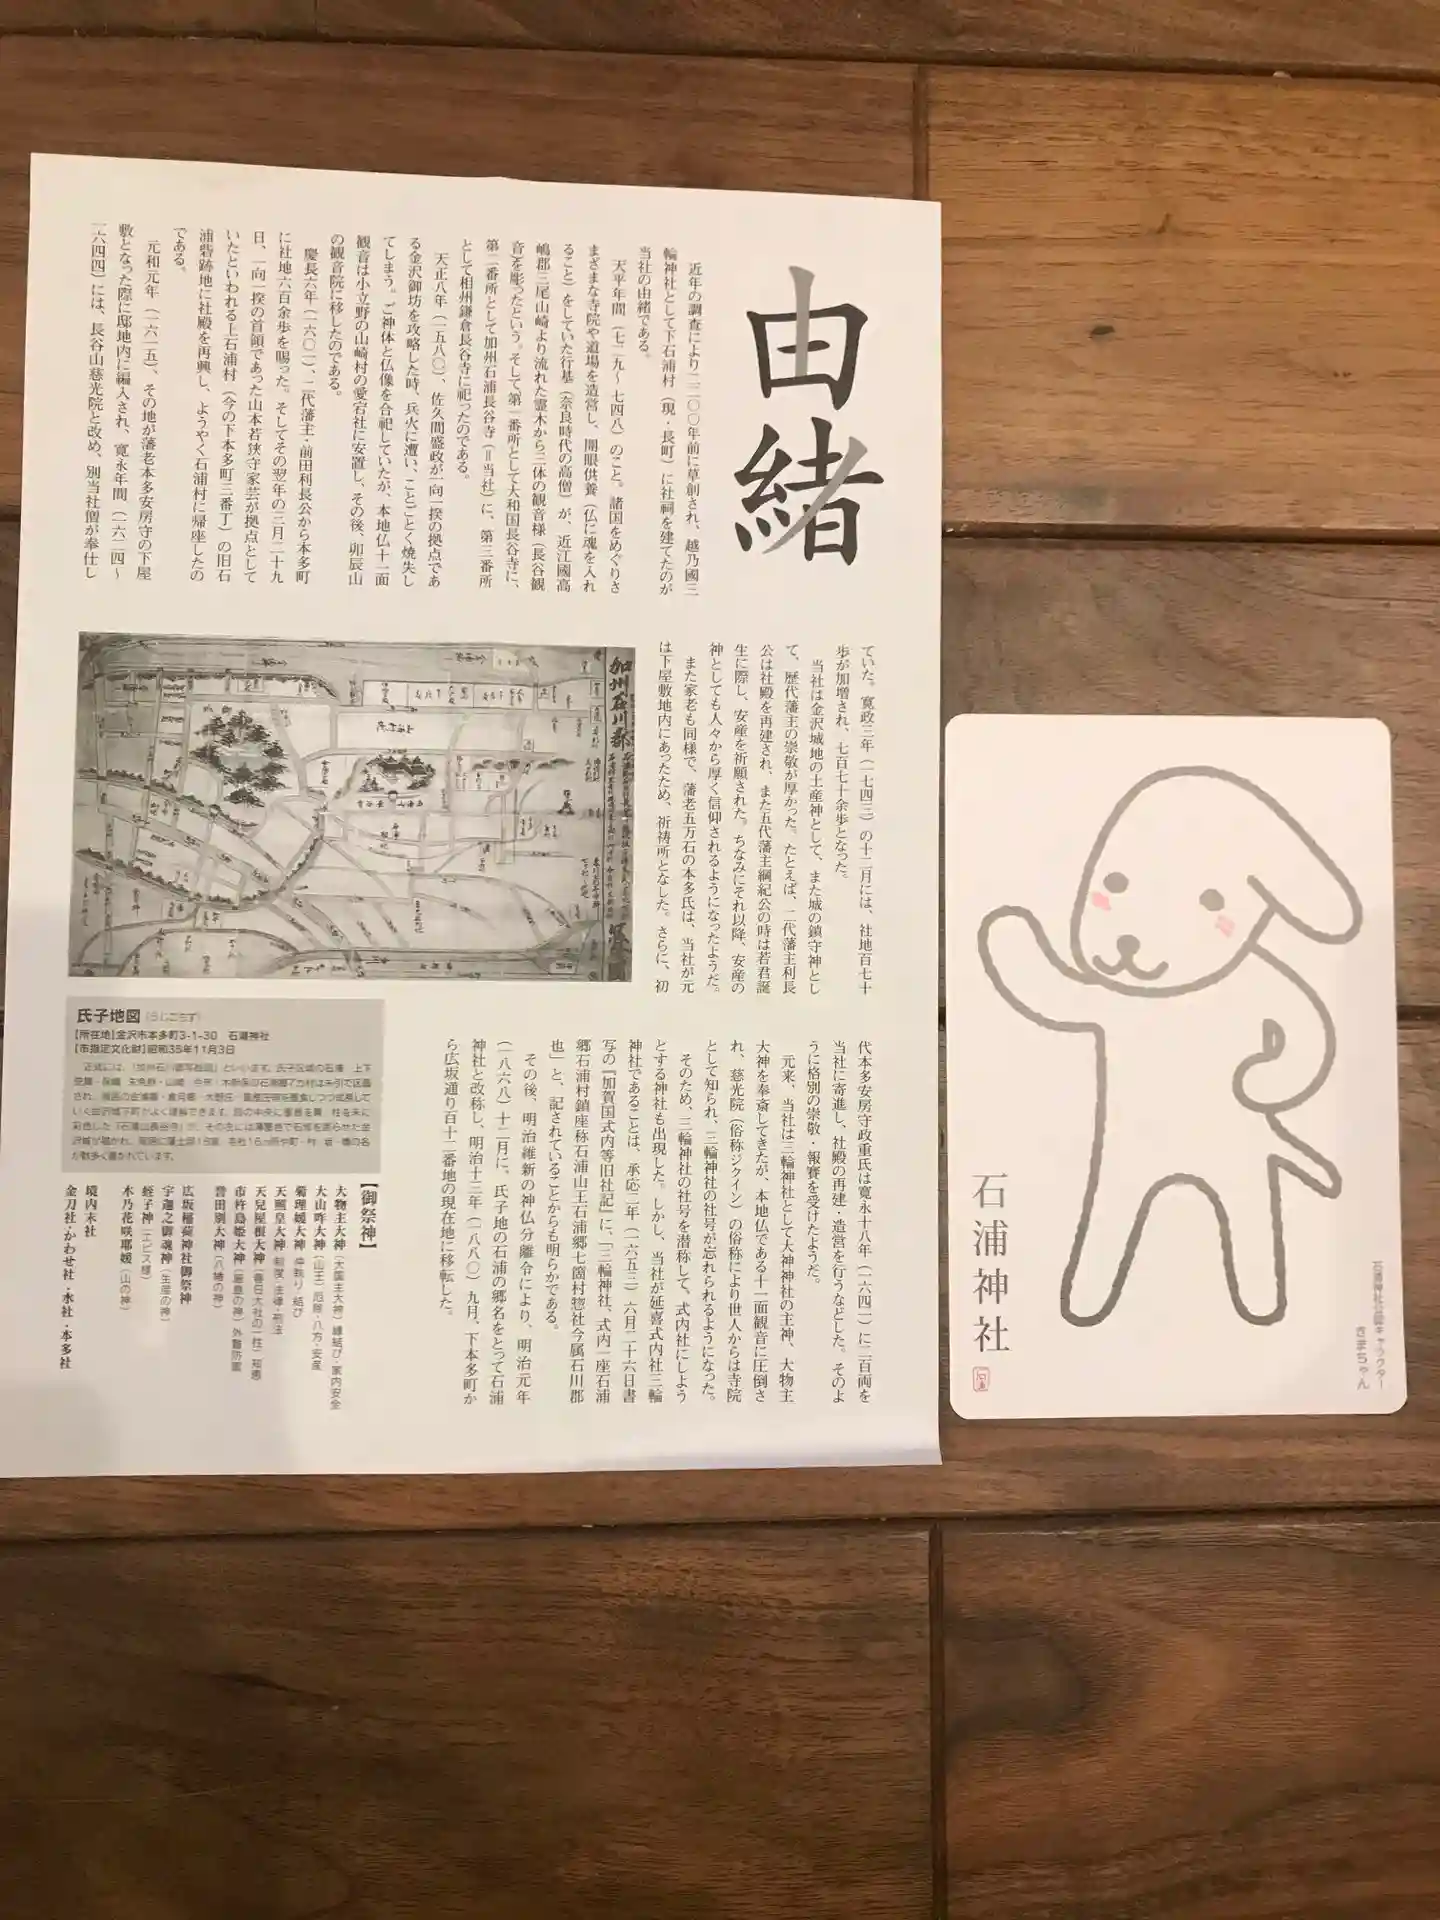 由緒
近年の調査により二二〇〇年前に草創され、越乃國三
輪神社として下石浦村（現・長町）に社祠を建てたのが
当社の由緒である。
天平年間（七二九～七四八）のこと。諸国をめぐりさ
まざまな寺院や道場を造営し、開眼供養（仏に魂を入れ
ること）をしていた行基（奈良時代の高僧）が、近江國高
嶋郡三尾山崎より流れた霊木から三体の観音様（長谷観
音）を彫ったという。そして第一番所として大和国長谷寺に、
第二番所として加州石浦長谷寺（＝当社）に、第三番所
として相州鎌倉長谷寺に祀ったのである。
天正八年（一五八〇）、佐久間盛政が一向一揆の拠点であ
る金沢御坊を攻略した時、兵火に遭い、ことごとく焼失し
てしまう。ご神体と仏像を合祀していたが、本地仏十一面
観音は小立野の山崎村の愛宕社に安置し、その後、卯辰山
の観音院に移したのである。
慶長六年（一六〇一）、二代藩主・前田利長公から本多町
に社地六百余歩を賜った。そしてその翌年の三月二十九
日、一向一揆の首領であった山本若狭守家芸が拠点として
いたといわれる上石浦村（今の下本多町三番丁）の旧石
浦砦跡地に社殿を再興し、ようやく石浦村に帰座したの
である。
元和元年（一六一五）、その地が藩老本多安房守の下屋
敷となった際に邸地内に編入され、寛永年間（一六二四～
一六四四）には、長谷山慈光院と改め、別当社僧が奉仕し
ていた。寛政三年（一七四三）の十二月には、社地百七十
歩が加増され、七百七十余歩となった。
当社は金沢城地の土産神として、また城の鎮守神とし
て、歴代藩主の崇敬が厚かった。たとえば、二代藩主利長
公は社殿を再建され、また五代藩主綱紀公の時は若君誕
生に際し、安産を祈願された。ちなみにそれ以降、安産の
神としても人々から厚く信仰されるようになったようだ。
また家老も同様で、藩老五万石の本多氏は、当社が元
は下屋敷地内にあったため、祈祷所となした。さらに、初
代本多安房守政重氏は寛永十八年（一六四一）に二百両を
当社に寄進し、社殿の再建・造営を行うなどした。そのよ
うに格別の崇敬・報賽を受けたようだ。
元来、当社は三輪神社として大神神社の主神、大物主
大神を奉斎してきたが、本地仏である十一面観音に圧倒さ
れ、慈光院（俗称ジクイン）の俗称により世人からは寺院
として知られ、三輪神社の社号が忘れられるようになった。
そのため、三輪神社の社号を潜称して、式内社にしよう
とする神社も出現した。しかし、当社が延喜式内社三輪
神社であることは、承応二年（一六五三）六月二十六日書
写の『加賀国式内等旧社記』に、「三輪神社、式内一座石浦
郷石浦村鎮座称石浦山王石浦郷七箇村惣社今属石川郡
也」と、記されていることからも明らかである。
その後、明治維新の神仏分離令により、明治元年
（一八六八）十二月に、氏子地の石浦の郷名をとって石浦
神社と改称し、明治十三年（一八八〇）九月、下本多町か
ら広坂通り百十二番地の現在地に移転した。
加州石川郡
氏子地図（うじこちず）
【所在地】金沢市本多町3-1-30　石浦神社
【市指定文化財】昭和35年11月3日
【御祭神】
大物主大神（大国主大神）縁結び・家内安全
大山咋大神（山王）厄除・八方・安産
菊理媛大神 仲執り・結び
天照皇大神 制度・法律・司法
天兒屋根大神（春日大社の一柱）知恵
市杵島姫大神（厳島の神）外難防禦
誉田別大神（八幡の神）
広坂稲荷神社御祭神
宇迦之御魂神（生産の神）
蛭子神（エビス様）
木乃花咲耶媛（山の神）
境内末社
金刀社・かわせ社・水社・本多社
石浦神社
石浦神社公認キャラクター
きまちゃん